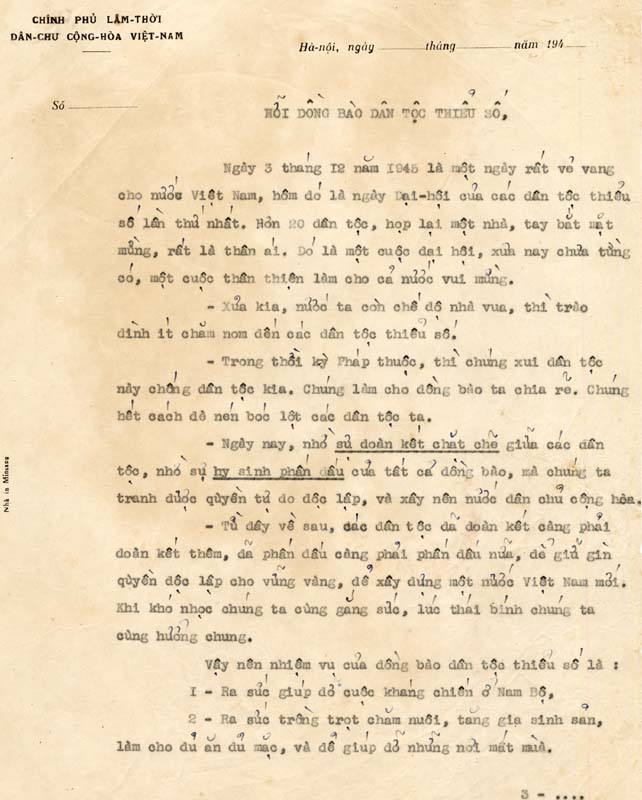 CHÍNH PHỦ LÂM-THỜI
DÂN-CHỦ CỘNG-HÒA VIỆT-NAM
Hà-nội, ngày tháng năm 194
Số
HỠI ĐỒNG BÀO DÂN TỘC THIỂU SỐ,
Ngày 3 tháng I2 năm I945 là một ngày rất vẻ vang
cho nước Việt Nam, hôm đó là ngày Đại-hội của các dân tộc thiểu
số lần thứ nhất. Hơn 20 dân tộc, họp lại một nhà, tay bắt mặt
mừng, rất là thân ái. Đó là một cuộc đại hội, xưa nay chưa từng
có, một cuộc thân thiện làm cho cả nước vui mừng.
- Xưa kia, nước ta còn chế độ nhà vua, thì trào
đình ít chăm nom đến các dân tộc thiểu số.
- Trong thời kỳ Pháp thuộc, thì chúng xui dân tộc
này chống dân tộc kia. Chúng làm cho đồng bào ta chia rẽ. Chúng
hết cách đè nén bóc lột các dân tộc ta.
- Ngày nay, nhờ sự đoàn kết chặt chẽ giữa các dân
tộc, nhờ sự hy sinh phấn đấu của tất cả đồng bào, mà chúng ta
tranh được quyền tự do độc lập, và xây nên nước dân chủ cộng hòa.
- Từ đây về sau, các dân tộc đã đoàn kết càng phải
đoàn kết thêm, đã phấn đấu càng phải phấn đấu nữa, để giữ gìn
quyền độc lập cho vững vàng, để xây dựng một nước Việt Nam mới.
Khi khó nhọc chúng ta cùng gắng sức, lúc thái bình chúng ta
cùng hưởng chung.
Vậy nên nhiệm vụ của đồng bào dân tộc thiểu số là :
I - Ra sức giúp đỡ cuộc kháng chiến ở Nam Bộ,
2 - Ra sức trồng trọt chăn nuôi, tăng gia sinh sản,
làm cho đủ ăn đủ mặc, và để giúp đỡ những nơi mất mùa.
3 - ....
Nhà in Minsang